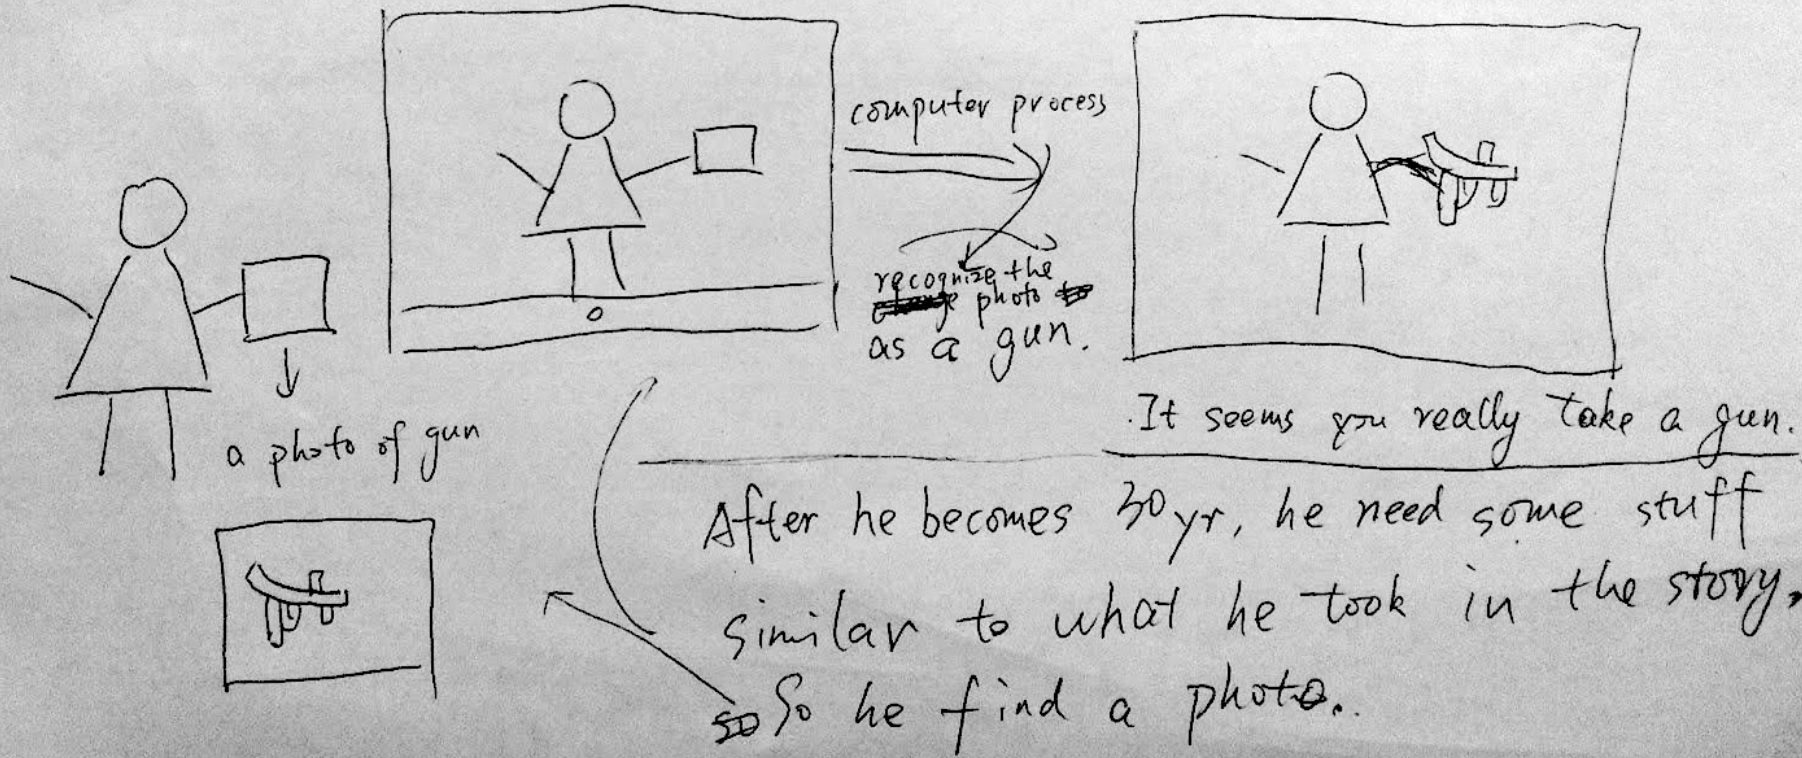 computer process
recognize the
photo
as a gun.
a photo of gun
It seems you really take a gun.
After he becomes 30yr, he need some stuff
similar to what he took in the story.
So he find a photo..